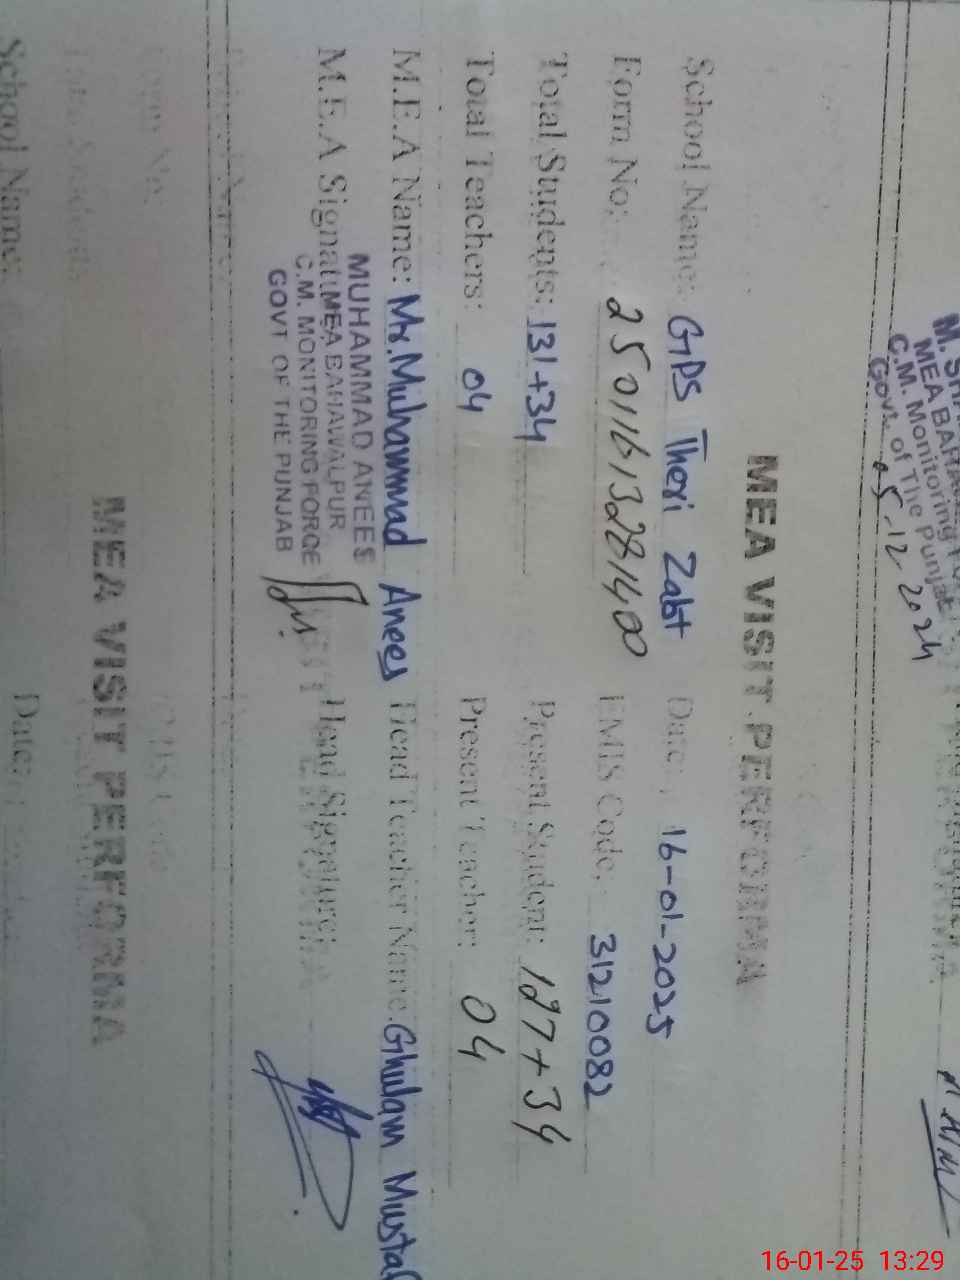 MEA BAHA
C.M. Monitoring
Govt. of The Punjab
05-12-2024
MEA VISIT PERFORMA
School Name: GPS Theri Zabt Date: 16-01-2025
Form No: 25011613281400 EMIS Code: 31210082
Total Students: 131+34 Present Student: 127+34
Total Teachers: 04 Present Teacher: 04
M.E.A Name: Mr. Muhammad Anees Head Teacher Name: Ghulam Musta
M.E.A Signature Head Signature:
MUHAMMAD ANEES
MEA BAHAWALPUR
C.M. MONITORING FORCE
GOVT OF THE PUNJAB
MEA VISIT PERFORMA
School Name: Date:
16-01-25 13:29